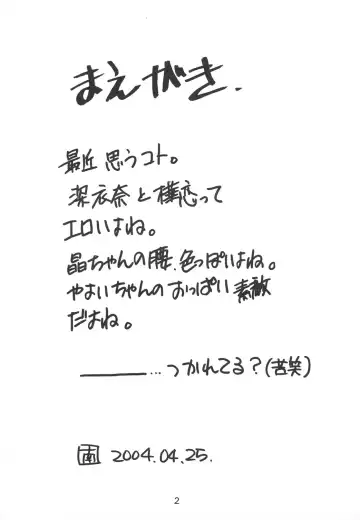 まえがき.
最近思うコト。
深衣奈と樺恋って
エロいよね。
晶ちゃんの腰、色っぽいよね。
やよいちゃんのおっぱい素敵
だよね。
――― …つかれてる?(苦笑)
2004.04.25.
2